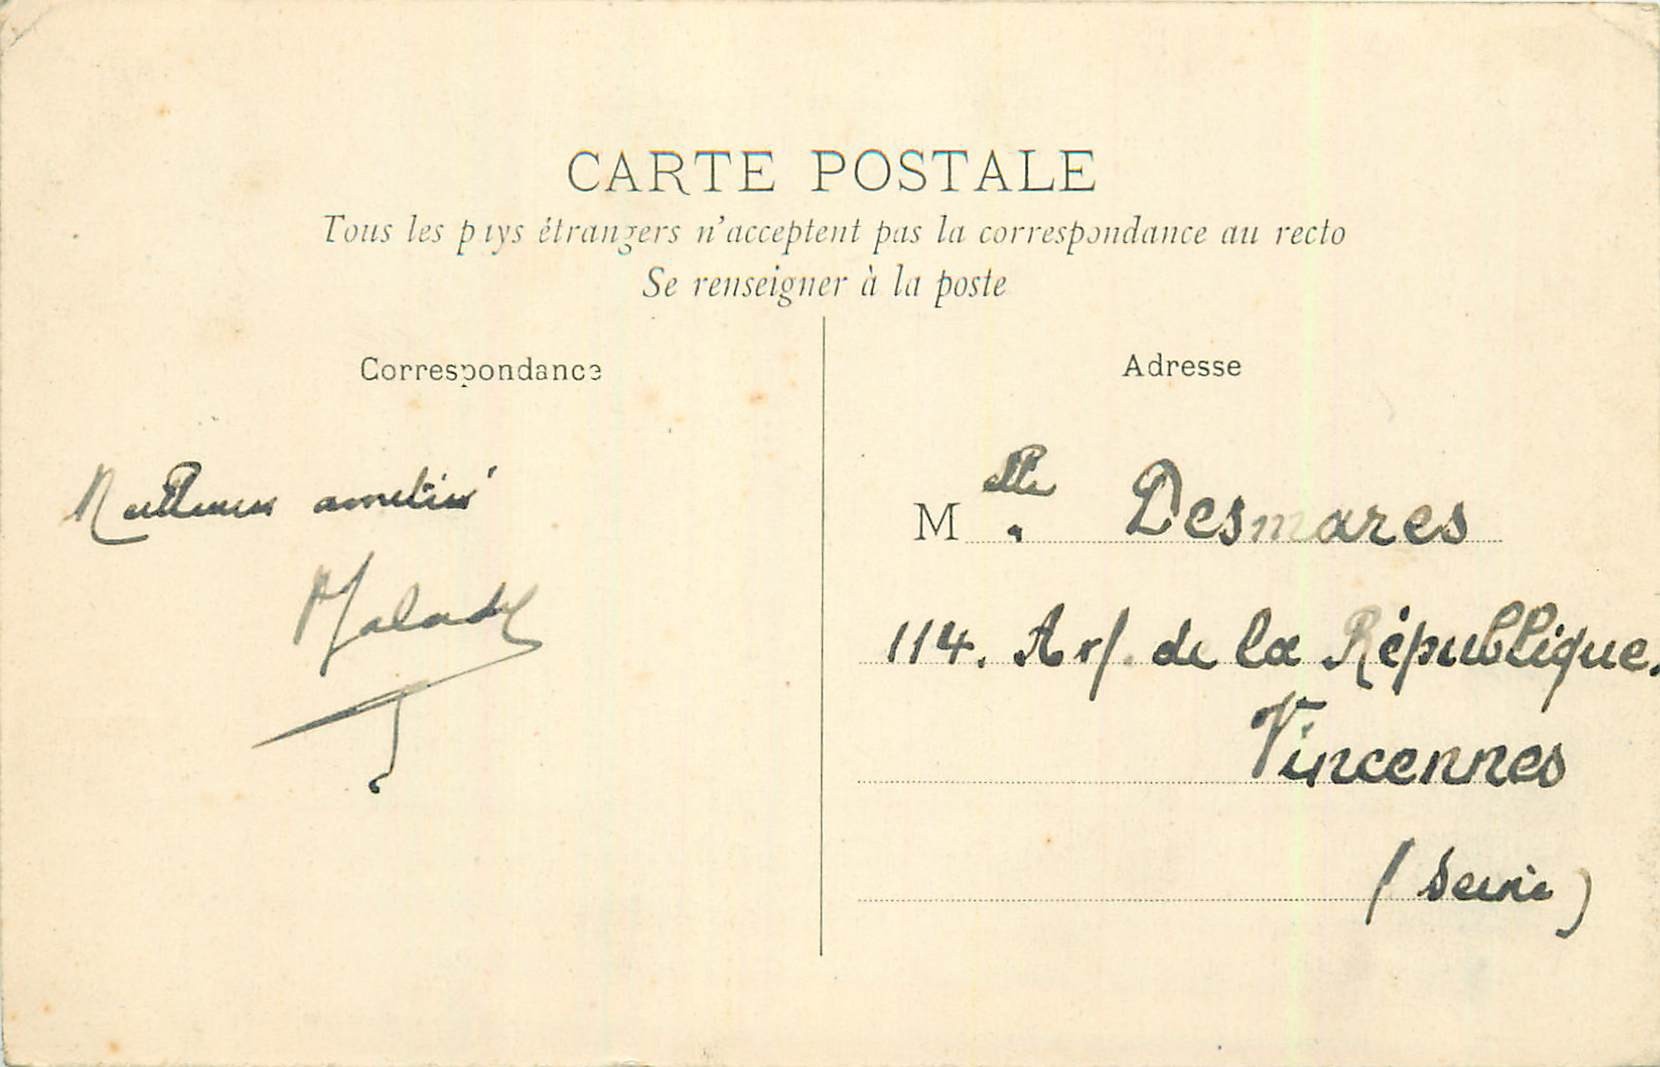 CARTE POSTALE
Tous les pays étrangers n'acceptent pas la correspondance au recto
Se renseigner à la poste
Correspondance
Adresse
Meilleures amitiés
M elle Desmares
114. Av. de la République.
Vincennes
(Seine)